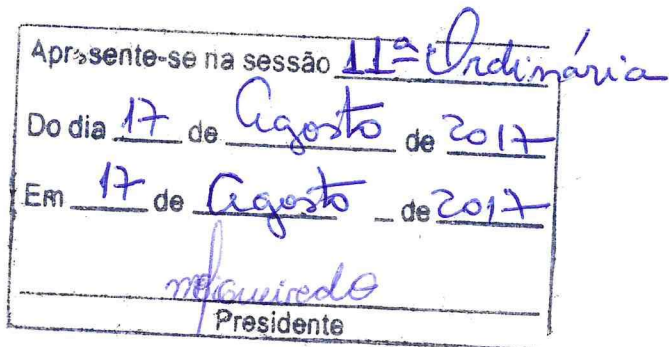 Apresente-se na sessão 11ª Ordinária
Do dia 17 de Agosto de 2017
Em 17 de Agosto de 2017
Presidente